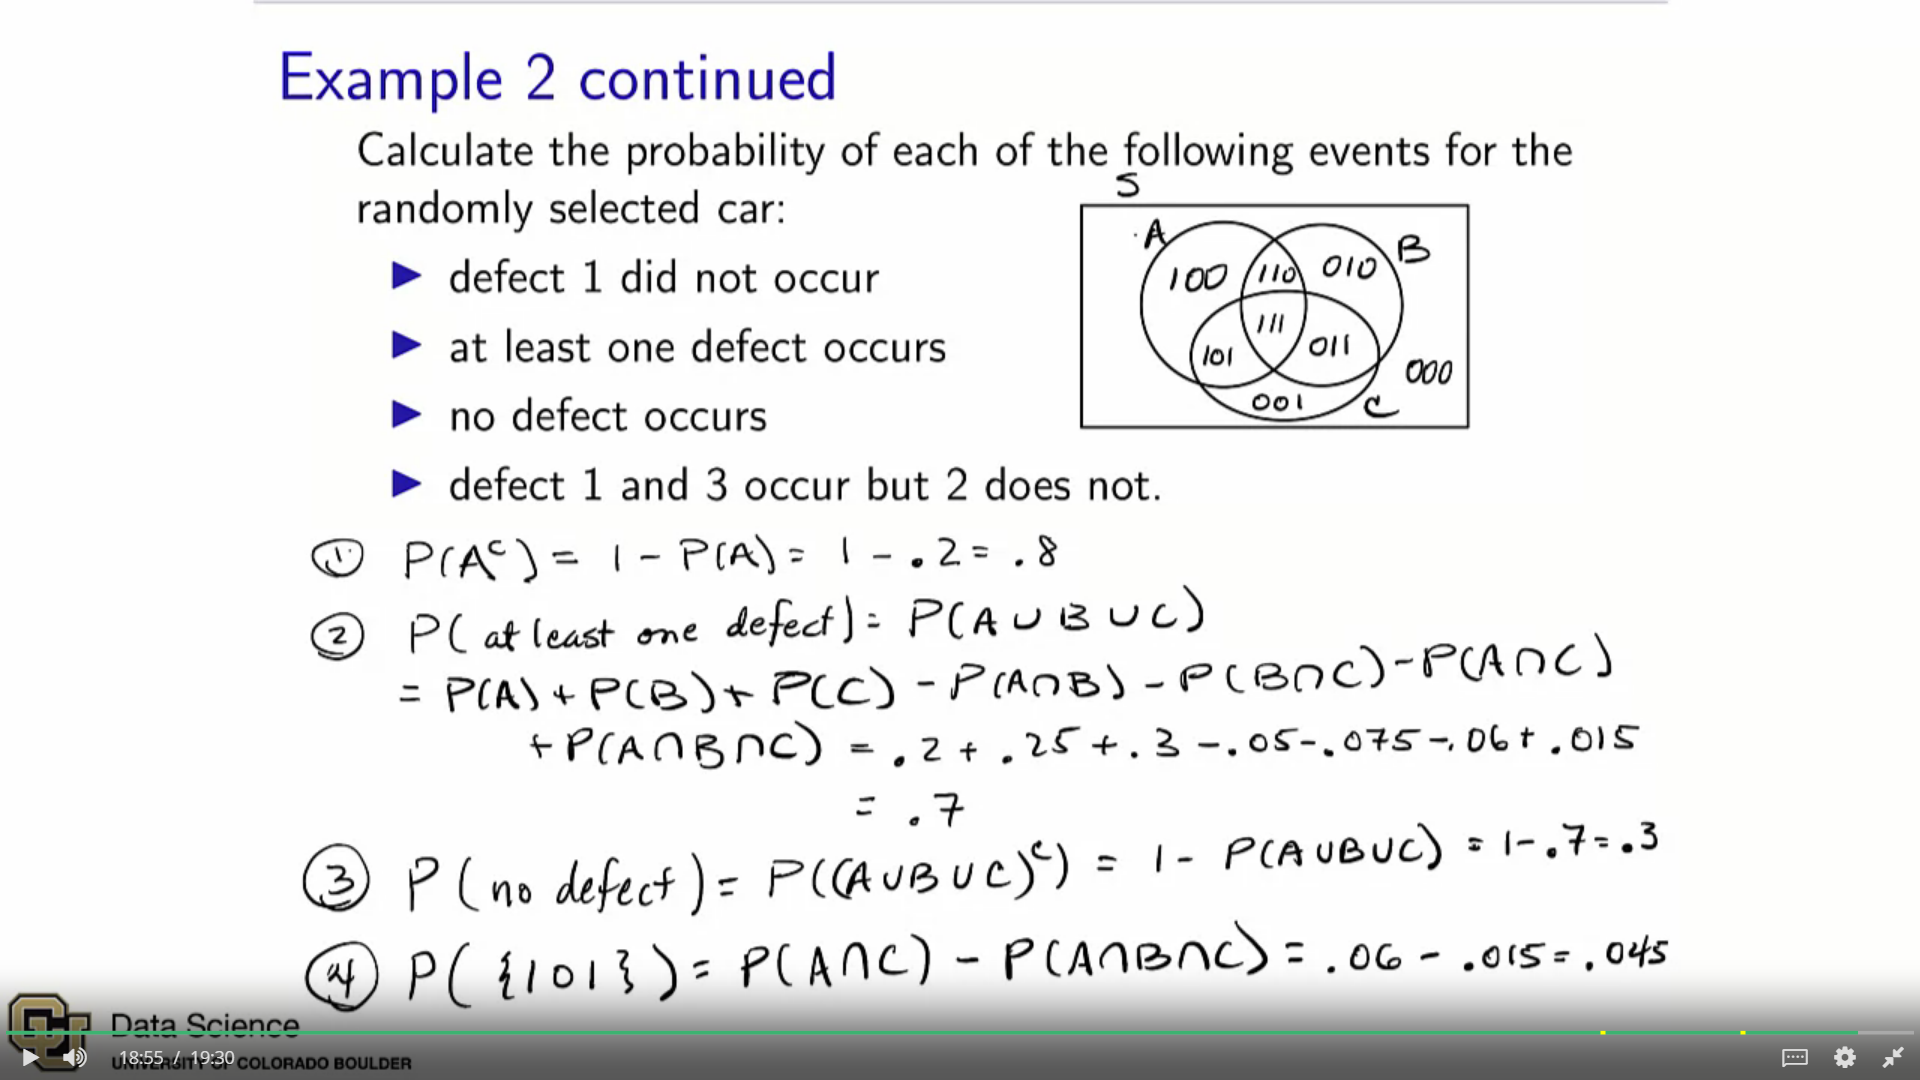 Example 2 continued
Calculate the probability of each of the following events for the
randomly selected car:
S
A
B
100
110
010
111
101
011
000
001
C
▶ defect 1 did not occur
▶ at least one defect occurs
▶ no defect occurs
▶ defect 1 and 3 occur but 2 does not.
① P(Aᶜ) = 1 - P(A) = 1 - .2 = .8
② P(at least one defect) = P(A ∪ B ∪ C)
= P(A) + P(B) + P(C) - P(A∩B) - P(B∩C) - P(A∩C)
+ P(A∩B∩C) = .2 + .25 + .3 - .05 - .075 - .06 + .015
= .7
③ P(no defect) = P((A∪B∪C)ᶜ) = 1 - P(A∪B∪C) = 1 - .7 = .3
④ P({101}) = P(A∩C) - P(A∩B∩C) = .06 - .015 = .045
Data Science
UNIVERSITY OF COLORADO BOULDER
18:55 / 19:30